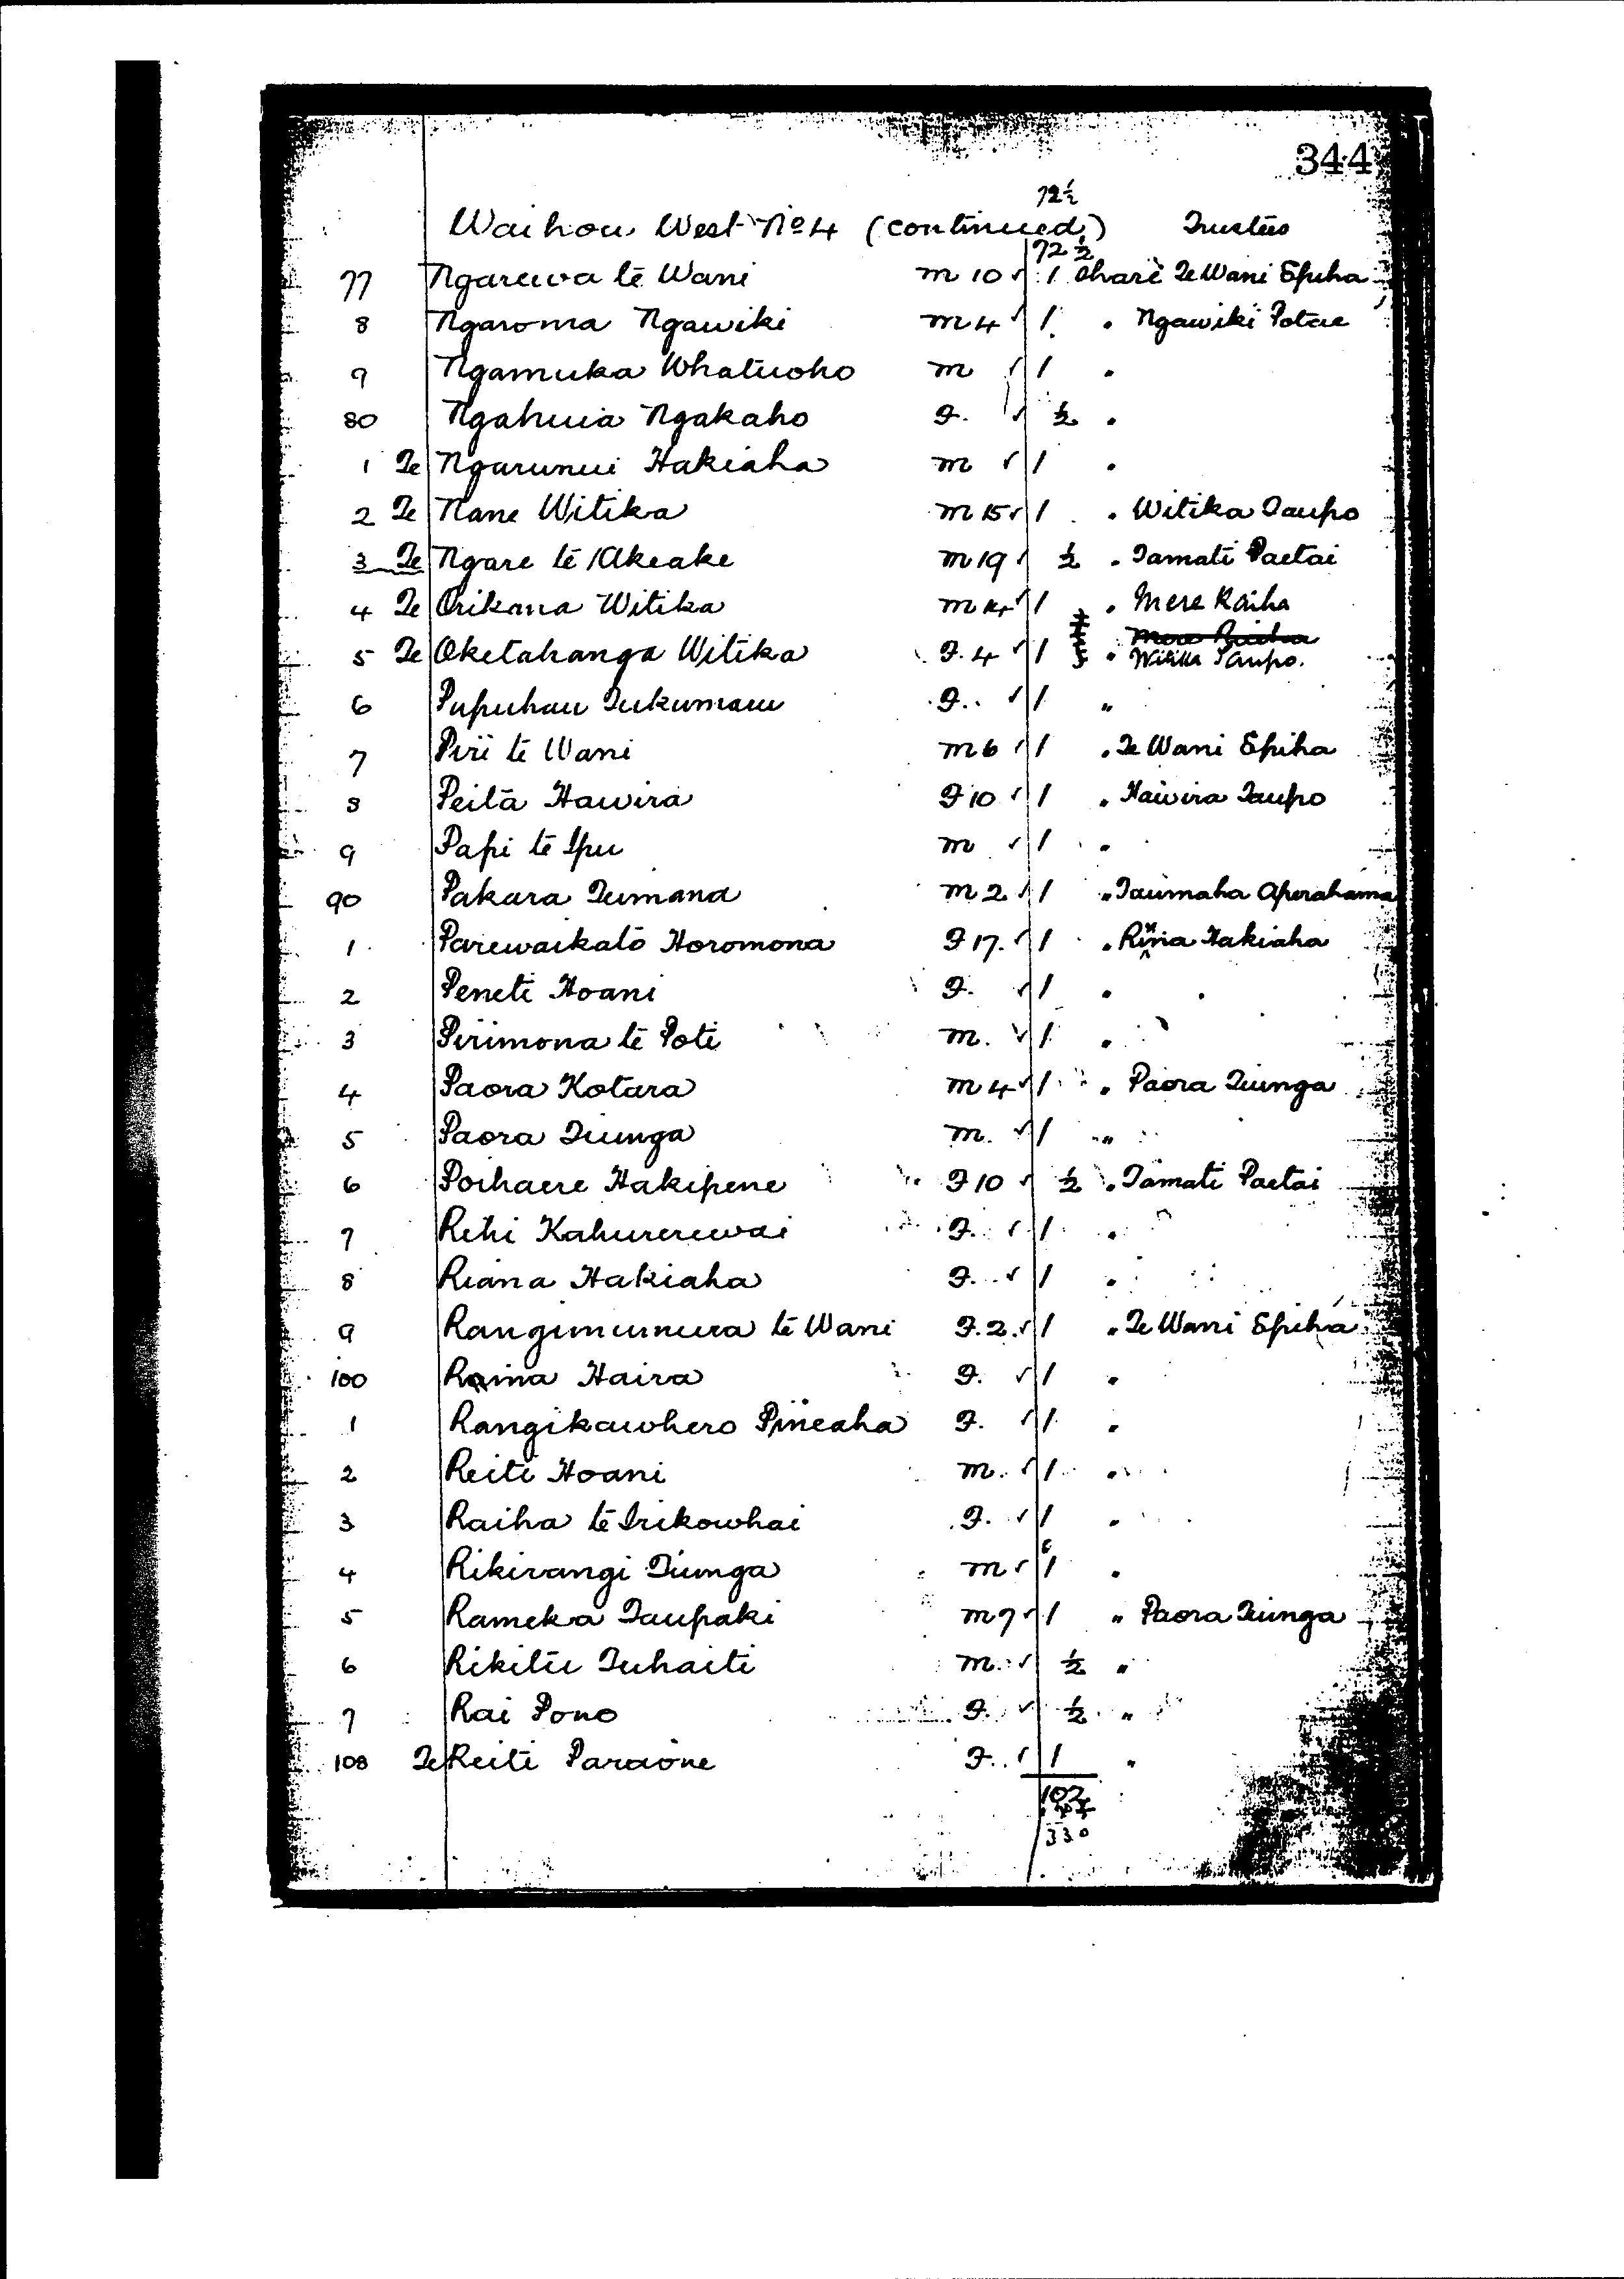 344
72½
Waihou West No 4 (continued) Trustees
72½
77 Ngarewa te Wani m 10 ✓ 1 share Te Wani Epiha
8 Ngaroma Ngawiki m 4 ✓ 1 " Ngawiki Potae
9 Ngamuka Whatuoho m ✓ 1 "
80 Ngahuia Ngakaho F. ✓ ½ "
1 Te Ngarunui Hakiaha m ✓ 1 "
2 Te Nane Witika m 15 ✓ 1 " Witika Taupo
3 Te Ngare te Akeake m 19 ✓ ½ " Tamati Paetai
4 Te Orikana Witika m ✓ 1 " Mere Raiha
5 Te Oketahanga Witika F. 4 ✓ 1 " Witika Taupo.
6 Pupuhau Tukumaru F. ✓ 1 "
7 Piri te Wani m 6 ✓ 1 " Te Wani Epiha
8 Peita Hawira F 10 ✓ 1 " Hawira Taupo
9 Papi te Ipu m ✓ 1 "
90 Pakara Tumana m 2 ✓ 1 " Taumaha Aperahama
1 Parewaikato Horomona F 17. ✓ 1 " Riana Hakiaha
2 Peneti Hoani F. ✓ 1 "
3 Pirimona te Poti m. ✓ 1 "
4 Paora Kotara m 4 ✓ 1 " Paora Tiunga
5 Paora Tiunga m. ✓ 1 "
6 Poihaere Hakipene F 10 ✓ ½ " Tamati Paetai
7 Rihi Kahurerewai F. ✓ 1 "
8 Riana Hakiaha F. ✓ 1 "
9 Rangimurnura te Wani F. 2. ✓ 1 " Te Wani Epiha
100 Raina Haira F. ✓ 1 "
1 Rangikawhero Pineaha F. ✓ 1 "
2 Reiti Hoani m. ✓ 1 "
3 Raiha te Irikowhai F. ✓ 1 "
4 Rikirangi Tiunga m ✓ 1 "
5 Rameka Taupaki m 7 ✓ 1 " Paora Tiunga
6 Rikitu Tuhaiti m. ✓ ½ "
7 Rai Pono F. ✓ ½ "
108 Te Reiti Paraone F. ✓ 1 "
102
330